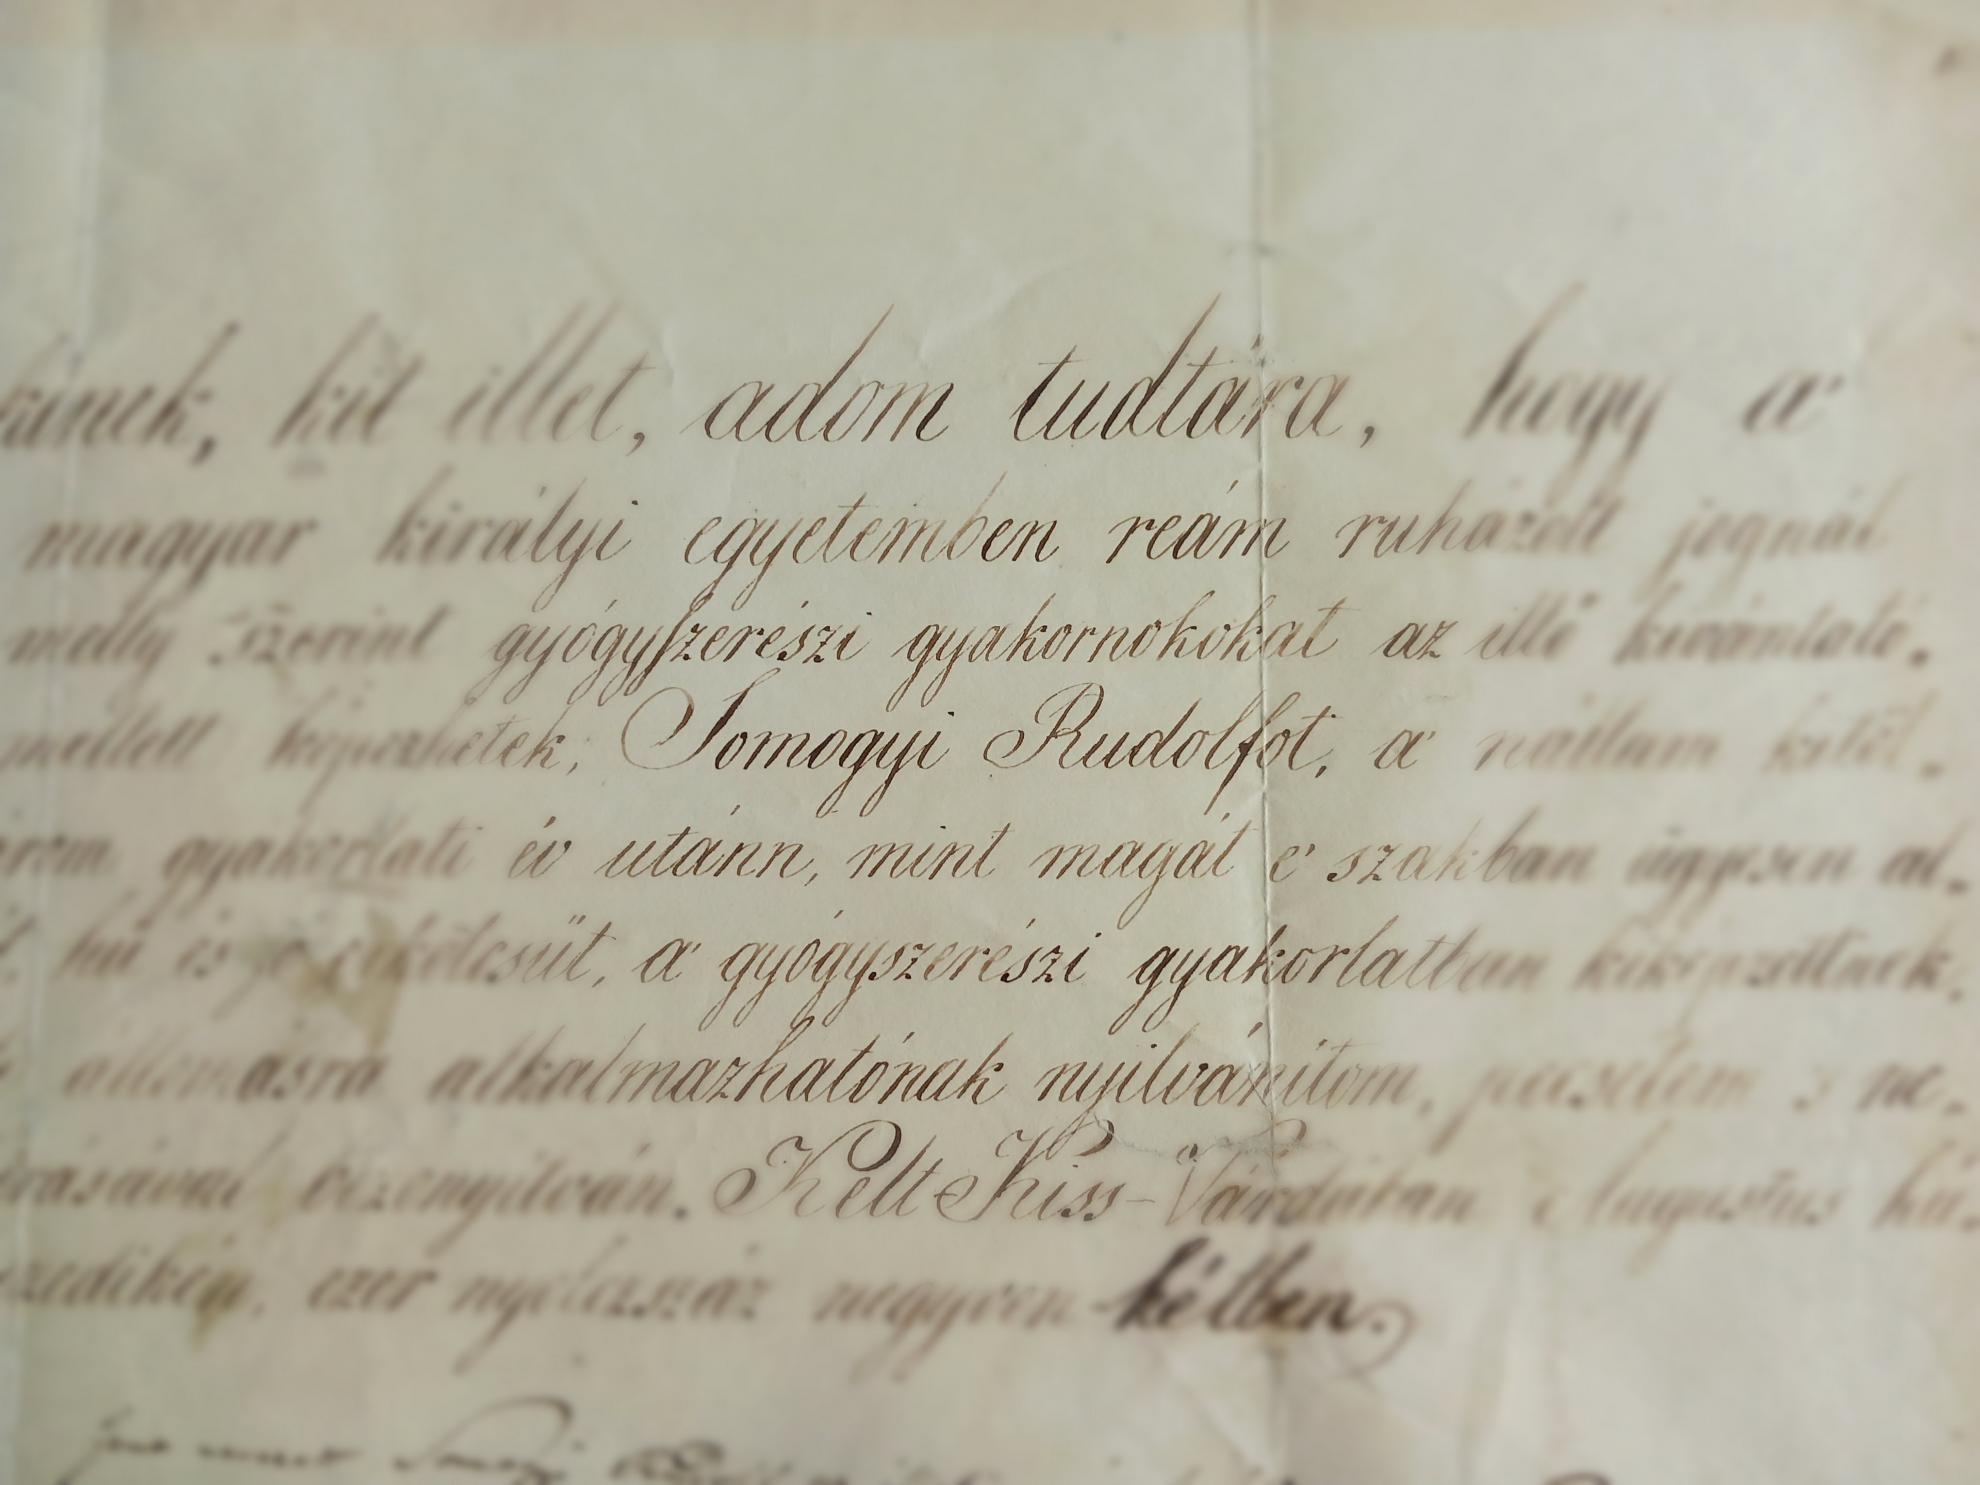 kinek, kit illet, adom tudtára, hogy a'
magyar királyi egyetemben reám ruházott jognál
melly szerint gyógyszerészi gyakornokokat az illő kivántató.
mellett képezhetek; Somogyi Rudolfot, a' nállam kitöl.
gyakorlati év utánn, mint magát e' szakban ügyesen al.
hű és jó erkölcsűt, a' gyógyszerészi gyakorlatban kiképzettnek,
állomásra alkalmazhatónak nyilvánitom, pecsétem s ne.
irásával bizonyitván. Kelt Kiss-Várdában Augustus hu.
zedikén, ezer nyolczszáz negyven-kétben.